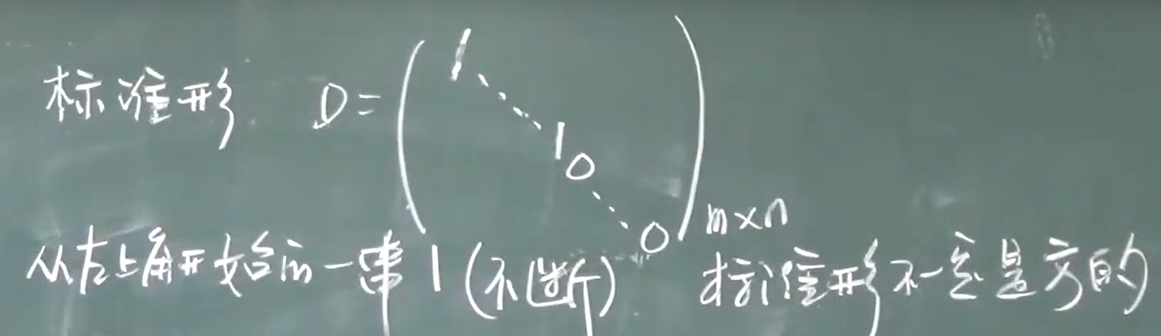 标准形 D= ( 1 ⋱ 1 0 ⋱ 0 ) m×n
从左上角开始的一串1(不断) 标准形不一定是方的